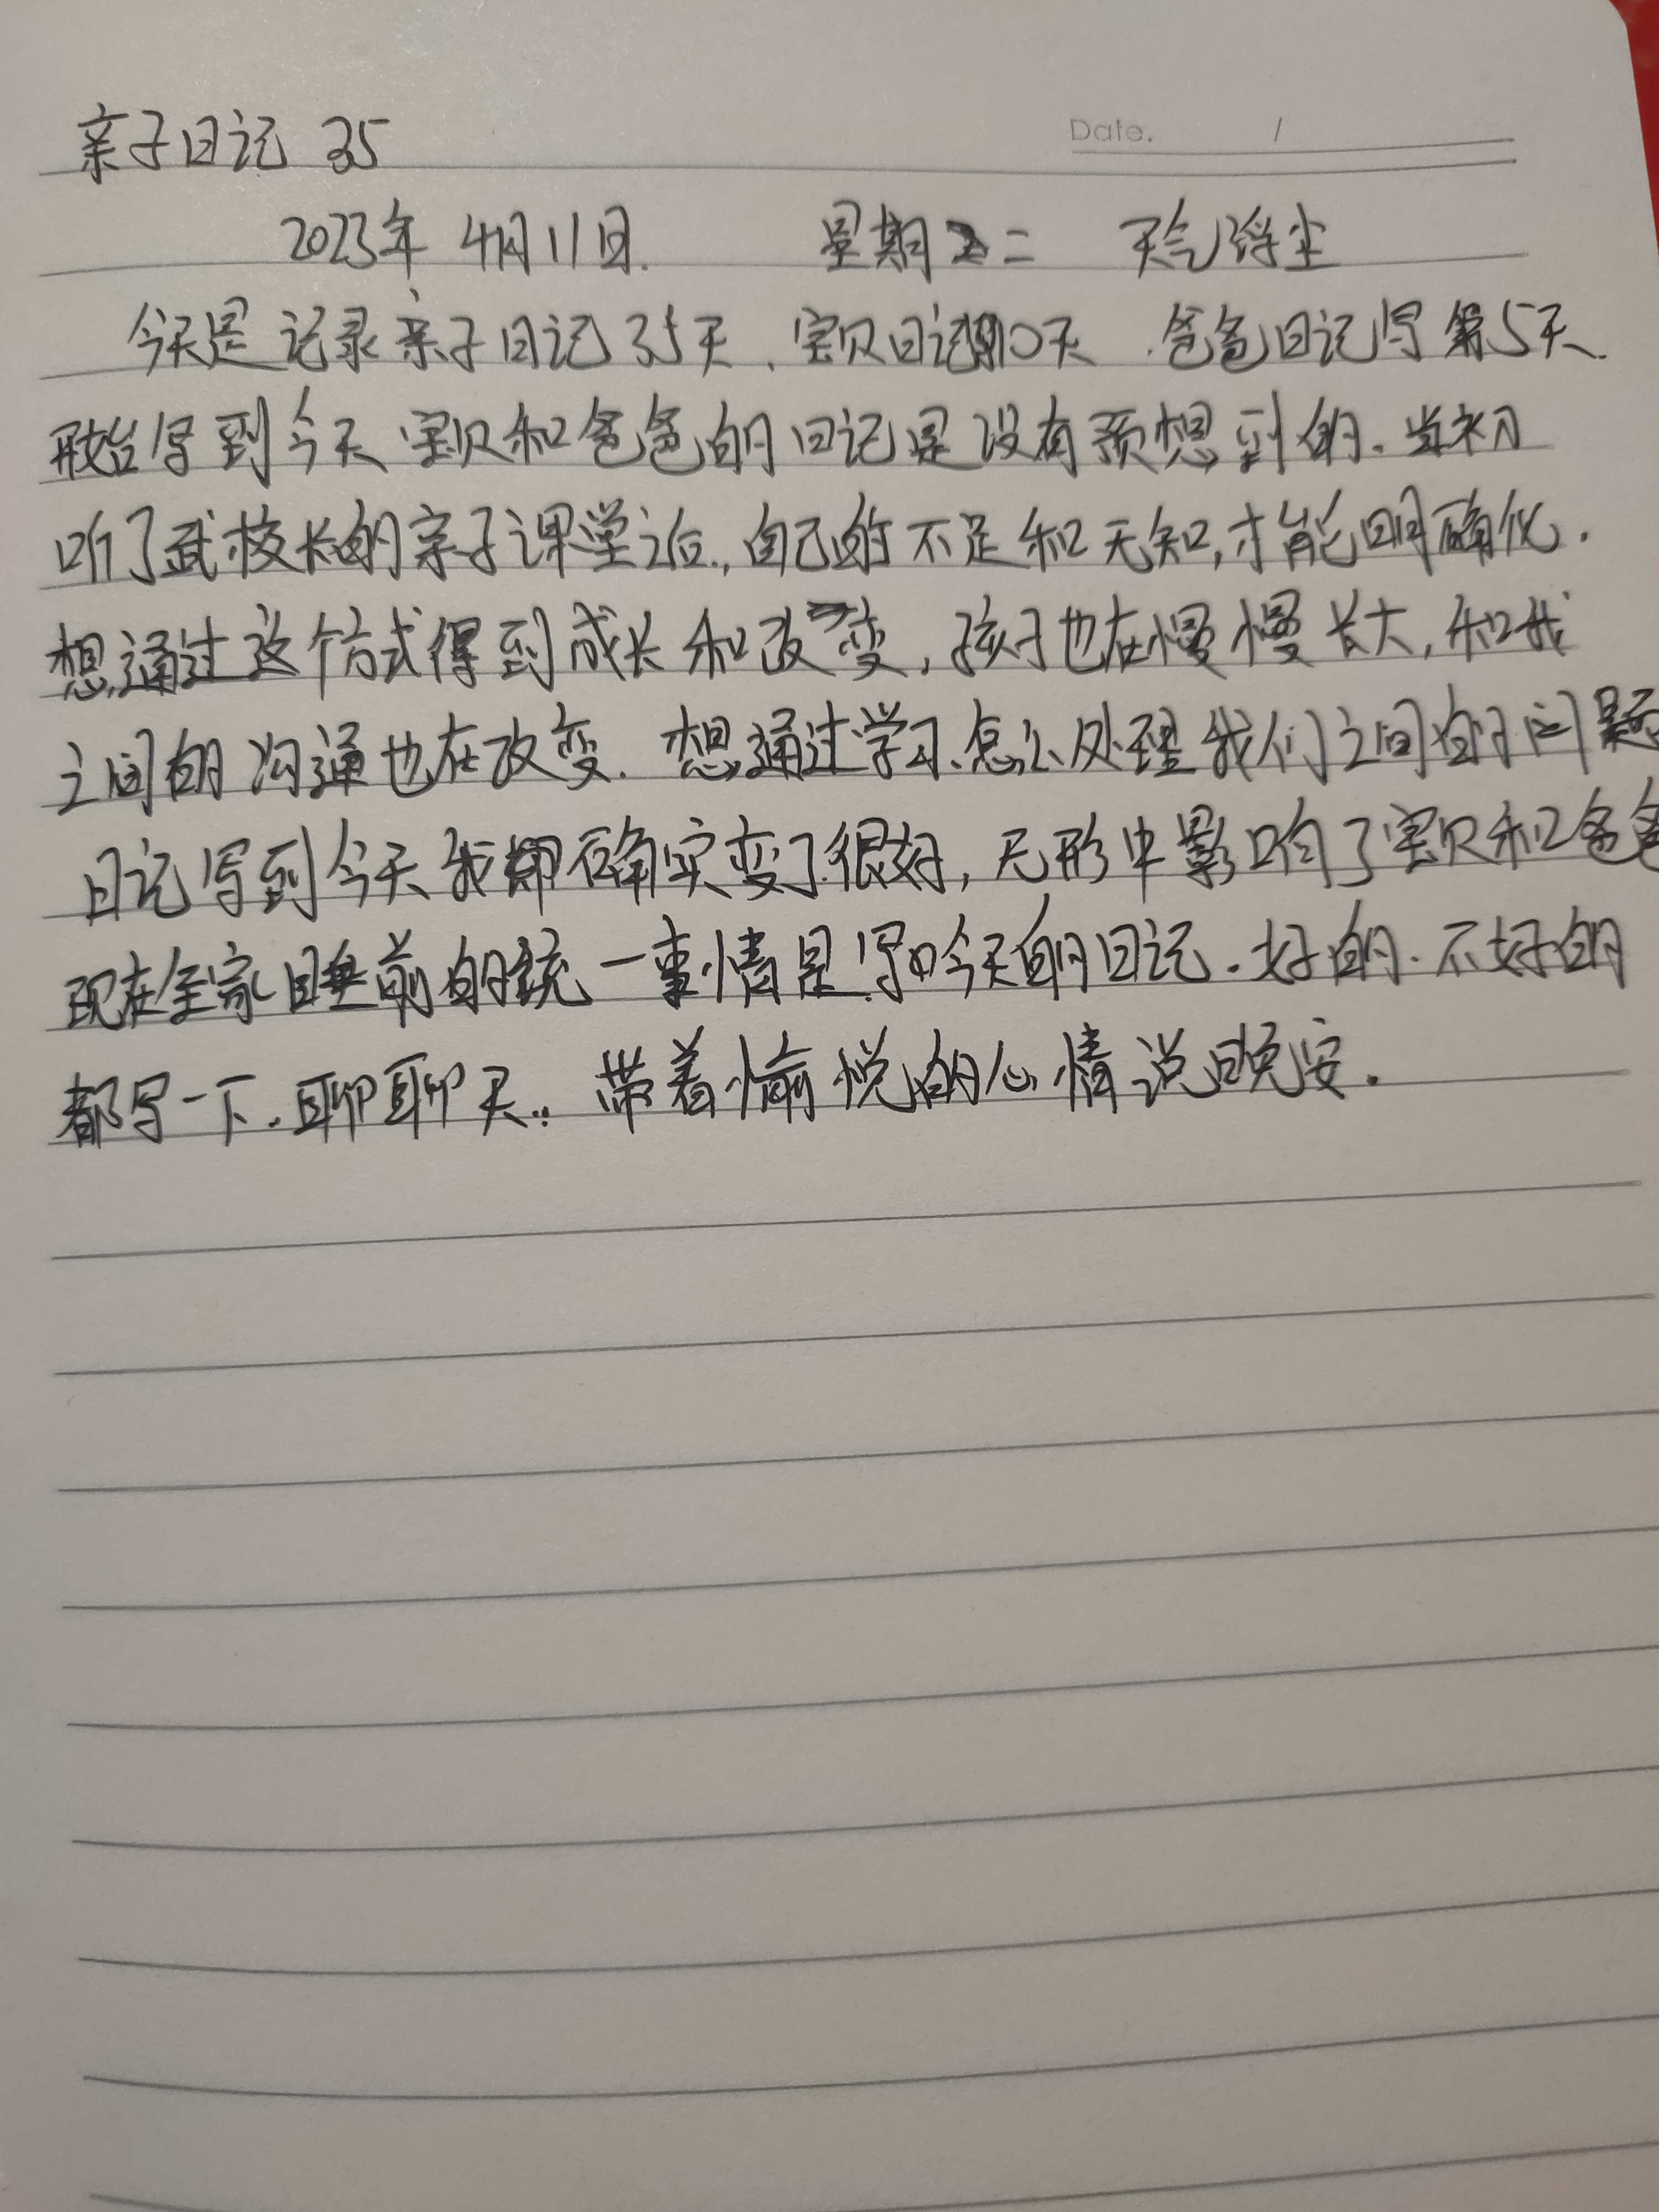 亲子日记 35
Date. /
2023年 4月11日. 星期二 天气浮尘
今天是记录亲子日记35天、宝贝日记10天.爸爸日记写第5天.
开始写到今天宝贝和爸爸的日记是没有预想到的.当初
听了武校长的亲子课堂之后.,自己的不足和无知,才能明确化.
想通过这个方式得到成长和改变,孩子也在慢慢长大,和我
之间的沟通也在改变.想通过学习怎么处理我们之间的问题
日记写到今天我确实变了很好,无形中影响了宝贝和爸爸
现在全家睡前的统一事情是写今天的日记.好的.不好的
都写一下.聊聊天..带着愉悦的心情说晚安.